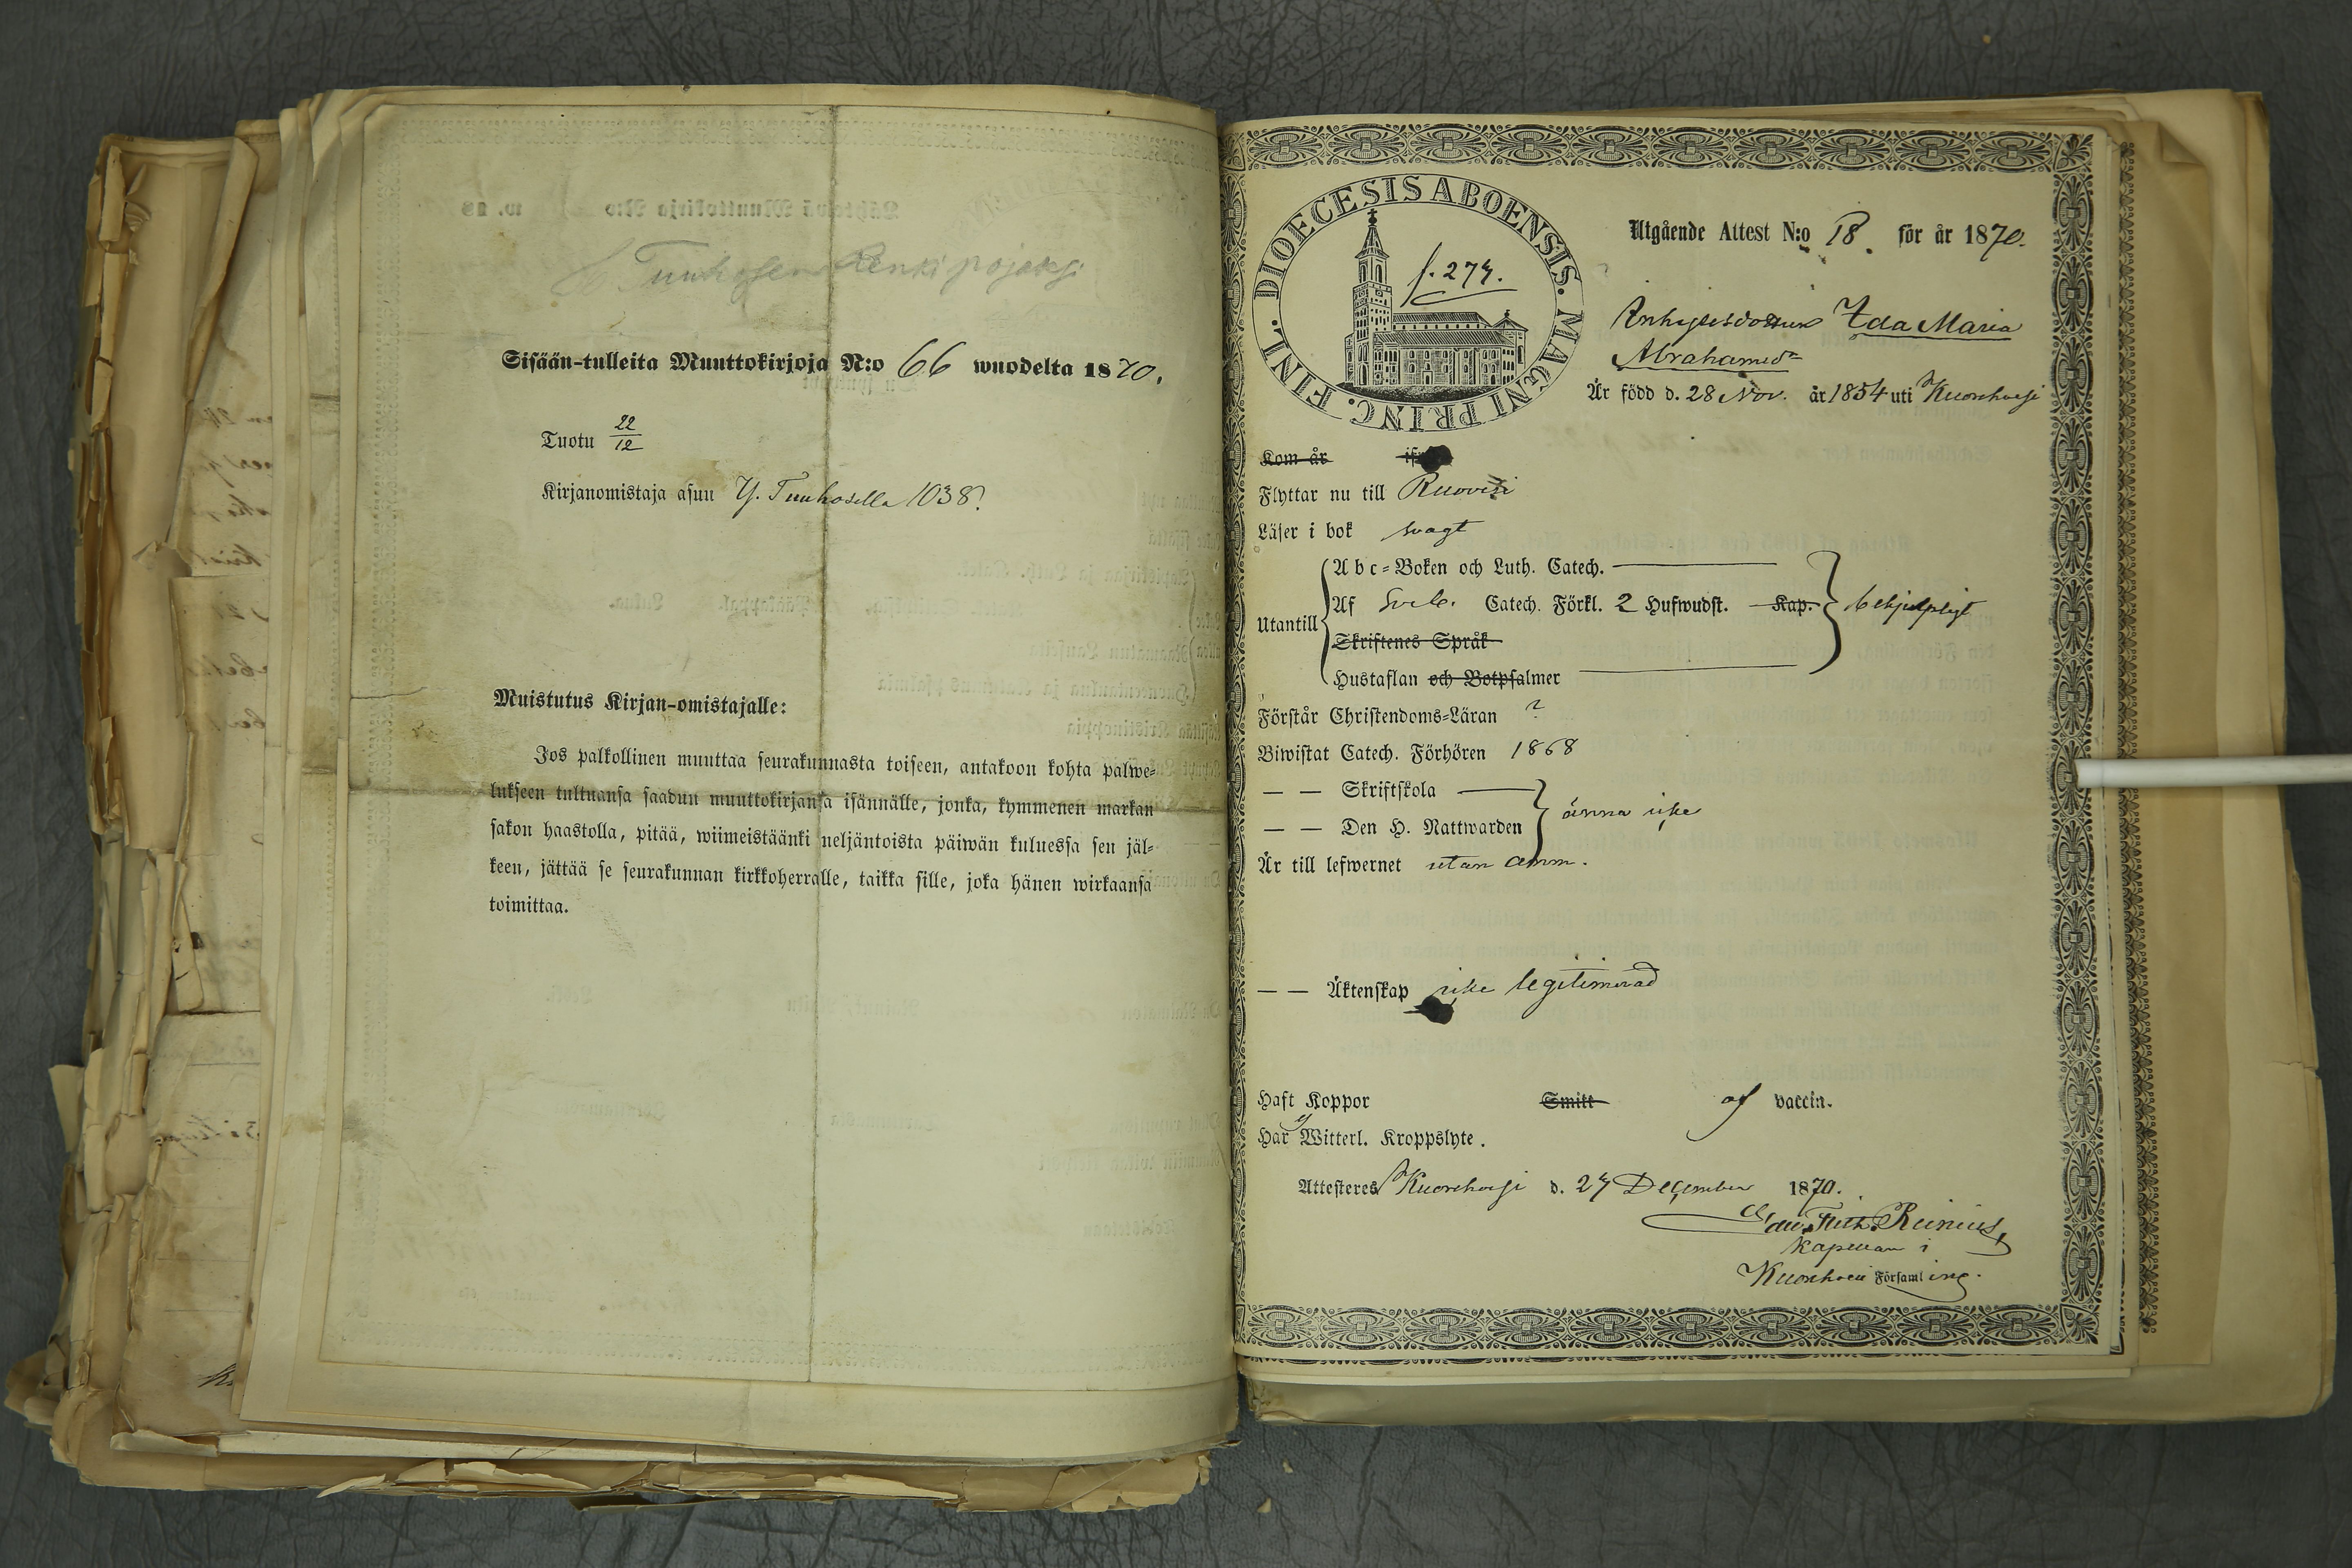 Tuuhosen Renki pojaksi
Sisään-tulleita Muuttokirjoja N:o 66 wuodelta 1870.
Tuotu 22/12
Kirjanomistaja asuu Y. Tuuhosella 1038.
Muistutus Kirjan-omistajalle:
Jos palkollinen muuttaa seurakunnasta toiseen, antakoon kohta palwe-
lukseen tultuansa saadun muuttokirjansa isännälle, jonka, kymmenen markan
sakon haastolla, pitää, wiimeistäänki neljäntoista päiwän kuluessa sen jäl-
keen, jättää se seurakunnan kirkkoherralle, taikka sille, joka hänen wirkaansa
toimittaa.
DIOECESIS ABOENSIS. MAGNI PRINC. FINL.
f. 274.
Utgående Attest N:o 18. för år 1870.
Inhysesdottern Ida Maria
Abrahamsdr
Är född d. 28 Nov. år 1854 uti Kuorehvesi
Kom år ifrån
Flyttar nu till Ruovesi
Läser i bok svagt
Utantill
Abc-Boken och Luth. Catech.
Af Sveb. Catech. Förkl. 2 Hufwudst. Kap.
behjelpligt
Skriftenes Språk
Hustaflan och Botpsalmer
Förstår Christendoms-Läran ?
Biwistat Catech. Förhören 1868
— — Skriftskola
— — Den H. Nattwarden
ännu icke
Är till lefwernet utan anm.
— — Äktenskap icke legitimerad
Haft Koppor Smitt af vaccin.
Har ej Witterl. Kroppslyte.
Attesteres Kuorehvesi d. 27 December 1870.
Reinius,
Kapellan i
Kuorehvesi Församling.